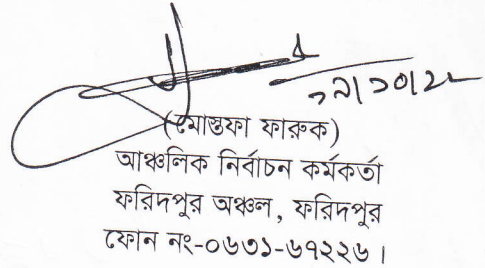 (মোস্তফা ফারুক)
আঞ্চলিক নির্বাচন কর্মকর্তা
ফরিদপুর অঞ্চল, ফরিদপুর
ফোন নং-০৬৩১-৬৭২২৬।